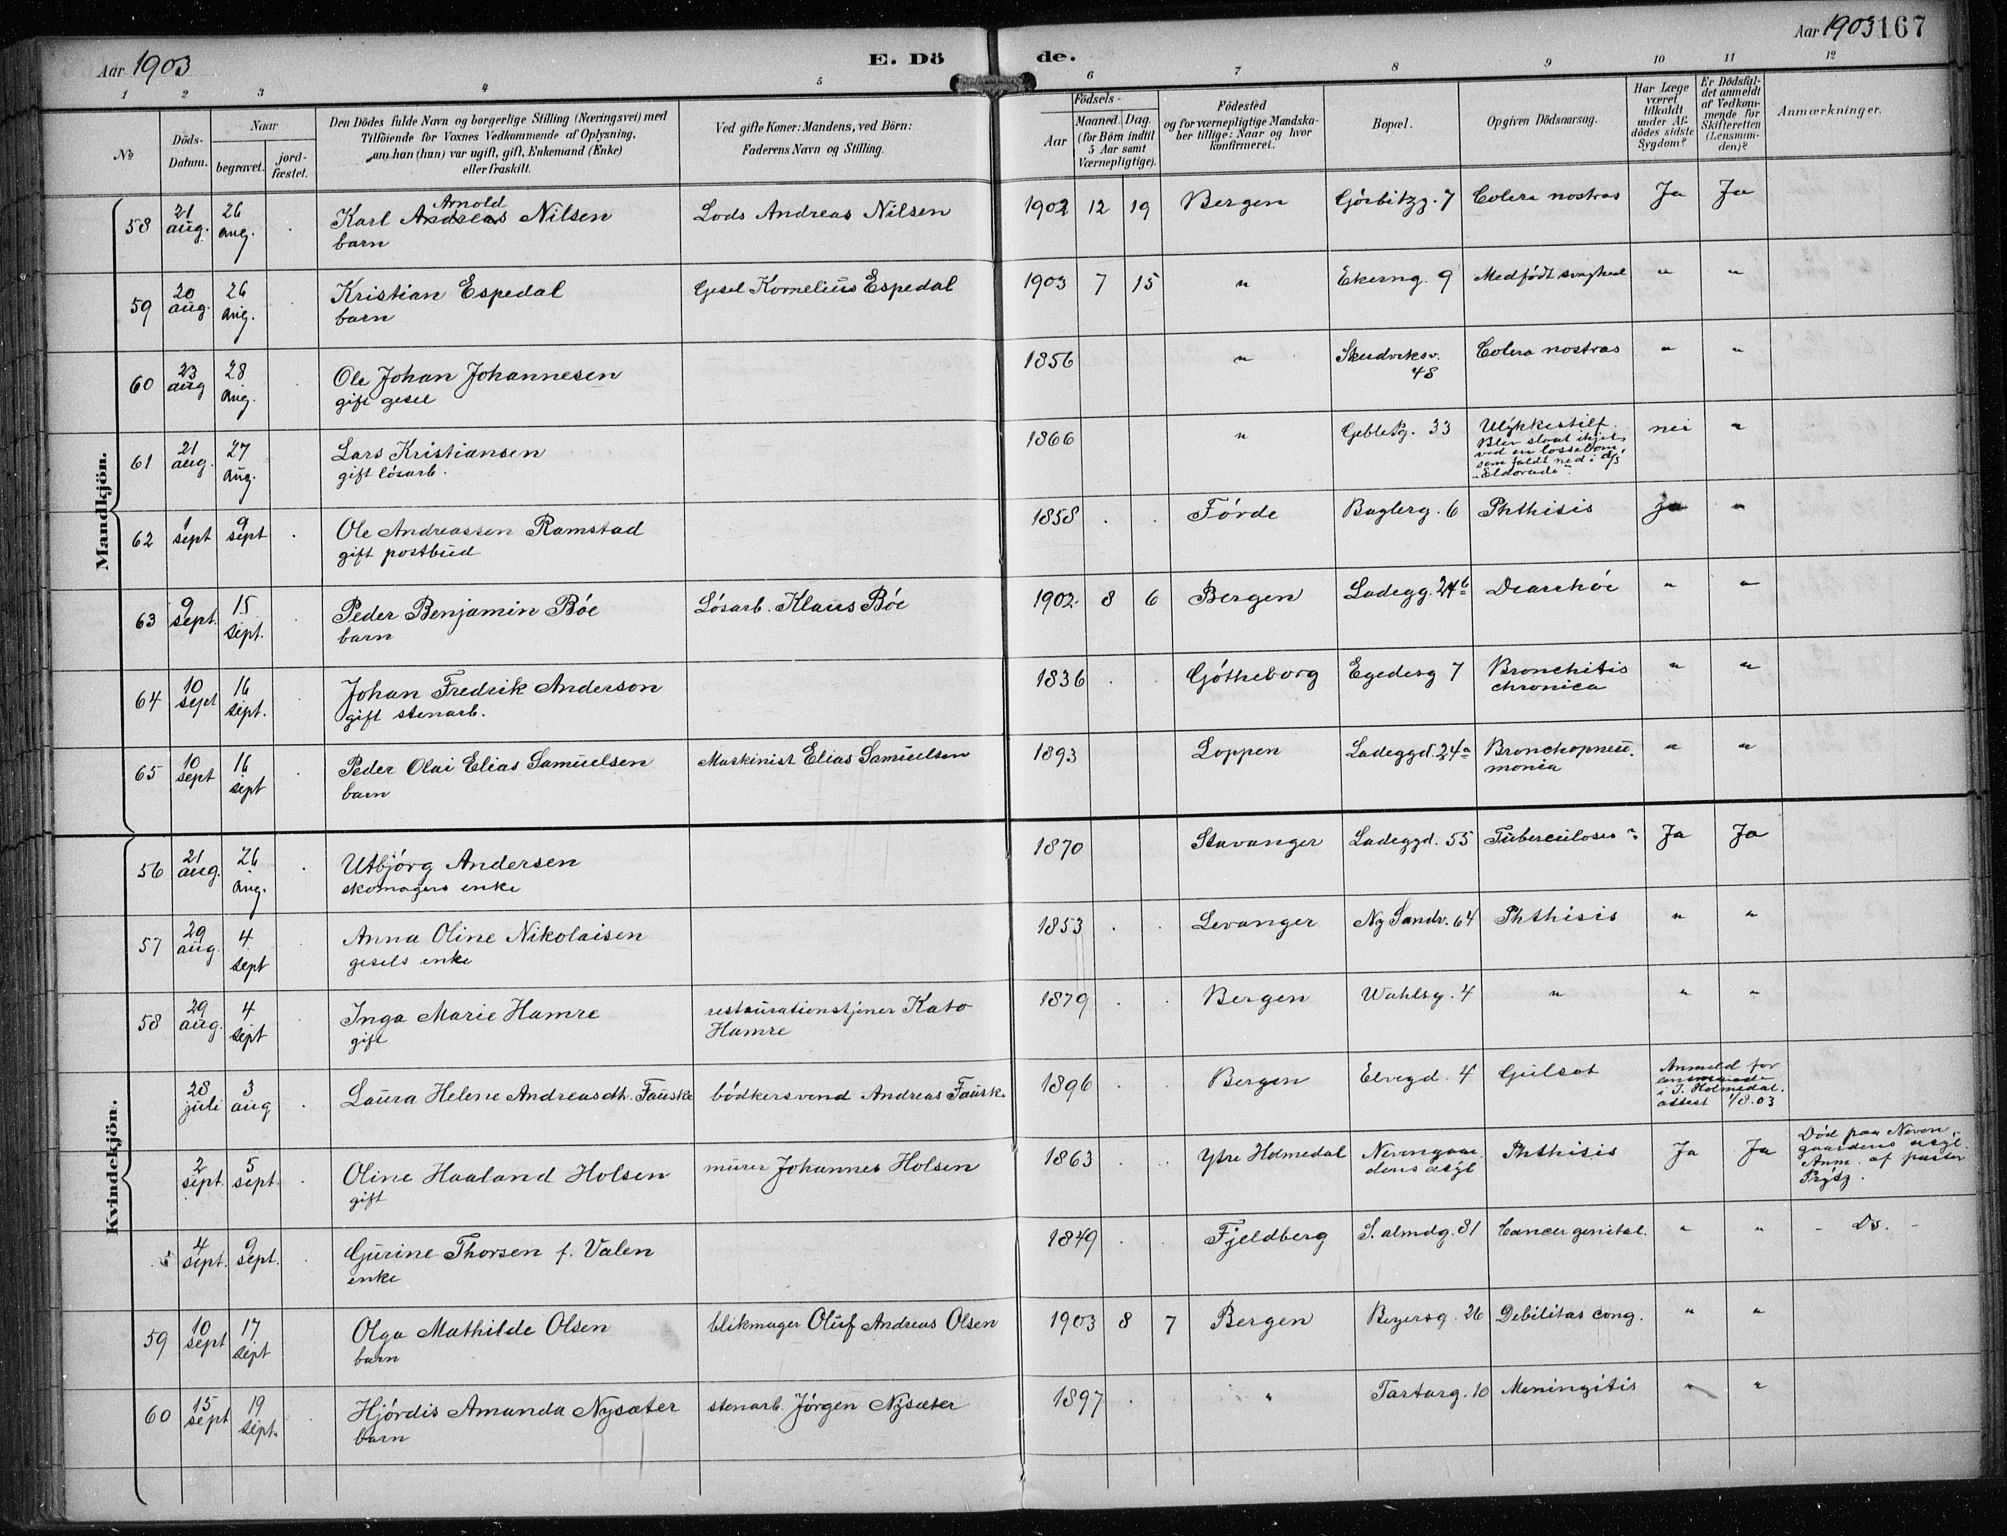 Aar 1903 E. Dö de. Aar 1903 167
1 2 3 4 5 6 7 8 9 10 11 12
№ Döds-Datum. Naar begravet. jord-fæstet. Den Dödes fulde Navn og borgerlige Stilling (Næringsvei) med Tilföiende for Voxnes Vedkommende af Oplysning, om han (hun) var ugift, gift, Enkemand (Enke) eller fraskilt. Ved gifte Koner: Mandens, ved Börn: Faderens Navn og Stilling. Födsels- Aar Maaned. Dag. (for Börn indtil 5 Aar samt Værnepligtige). Födested og for værnepligtige Mandskaber tillige: Naar og hvor Konfirmeret. Bopæl. Opgiven Dödsaarsag. Har Læge været tilkaldt under Afdödes sidste Sygdom? Er Dödsfaldet anmeldt af Vedkommende for Skifteretten (Lensmanden)? Anmærkninger.
Mandkjön.
58 21 aug. 26 aug. Karl Andreas Arnold Nilsen barn Lods Andreas Nilsen 1902 12 19 Bergen Görbitzg. 7 Colera nostras Ja Ja
59 20 aug. 26 aug. Kristian Espedal barn Gesel Kornelius Espedal 1903 7 15 " Ekerng. 9 Medfödt svaghed " "
60 23 aug 28 aug. Ole Johan Johannesen gift gesel 1856 " Skudviksv. 48 Colera nostras " "
61 21 aug. 27 aug. Lars Kristiansen gift lösarb. 1866 " Gebleg. 33 Ulykkestilf. Blev slaat ihjel ved en lossebom som faldt ned i d/s "Eldorado". nei "
62 1 sept 9 sept Ole Andreassen Ramstad gift postbud 1858 Förde Baglerg. 6 Phthisis Ja "
63 9 sept. 15 sept. Peder Benjamin Böe barn Lösarb. Klaus Böe 1902. 8 6 Bergen Ladegg. 24 b Diarrhöe " "
64 10 sept 16 sept. Johan Fredrik Anderson gift stenarb. 1836 Götheborg Egedesg 7 Bronchitis chronica " "
65 10 sept 16 sept Peder Olai Elias Samuelsen barn Maskinist Elias Samuelsen 1893 Loppen Ladeggd. 24a Bronchopneumonia " "
Kvindekjön.
56 21 aug. 26 aug. Utbjörg Andersen skomagers enke 1870 Stavanger Ladeggd. 55 Tuberculosis Ja Ja
57 29 aug. 4 sept Anna Oline Nikolaisen gesels enke 1853 Levanger Ny Sandv. 64 Phthisis " "
58 29 aug. 4 sept Inga Marie Hamre gift restaurationstjener Kato Hamre 1879 Bergen Wahlsg. 4 " " "
28 juli 3 aug Laura Helene Andreasdtr. Fauske bödkersvend Andreas Fauske 1896 Bergen Elvegd. 4 Gulsot Anmeld for lensmanden i I. Holmedal. attest 1/8.03
2 sept. 5 sept. Oline Haaland Holsen gift murer Johannes Holsen 1863 Ytre Holmedal Nevengaardens asyl Phthisis Ja Ja Död paa Nevengaardens asyl. Anm. af pastor
4 sept. 9 sept. Gurine Thorsen f. Valen enke 1849 Fjeldberg S. almdg. 31 Cancer genital. " " - Do. -
59 10 sept 17 sept Olga Mathilde Olsen barn blikmager Oluf Andreas Olsen 1903 8 7 Bergen Beyersg. 26 Debilitas cong. " "
60 15 sept 19 sept. Hjördis Amanda Nysæter barn stenarb. Jörgen Nysæter 1897 " Tartarg. 10 Meningitis " "